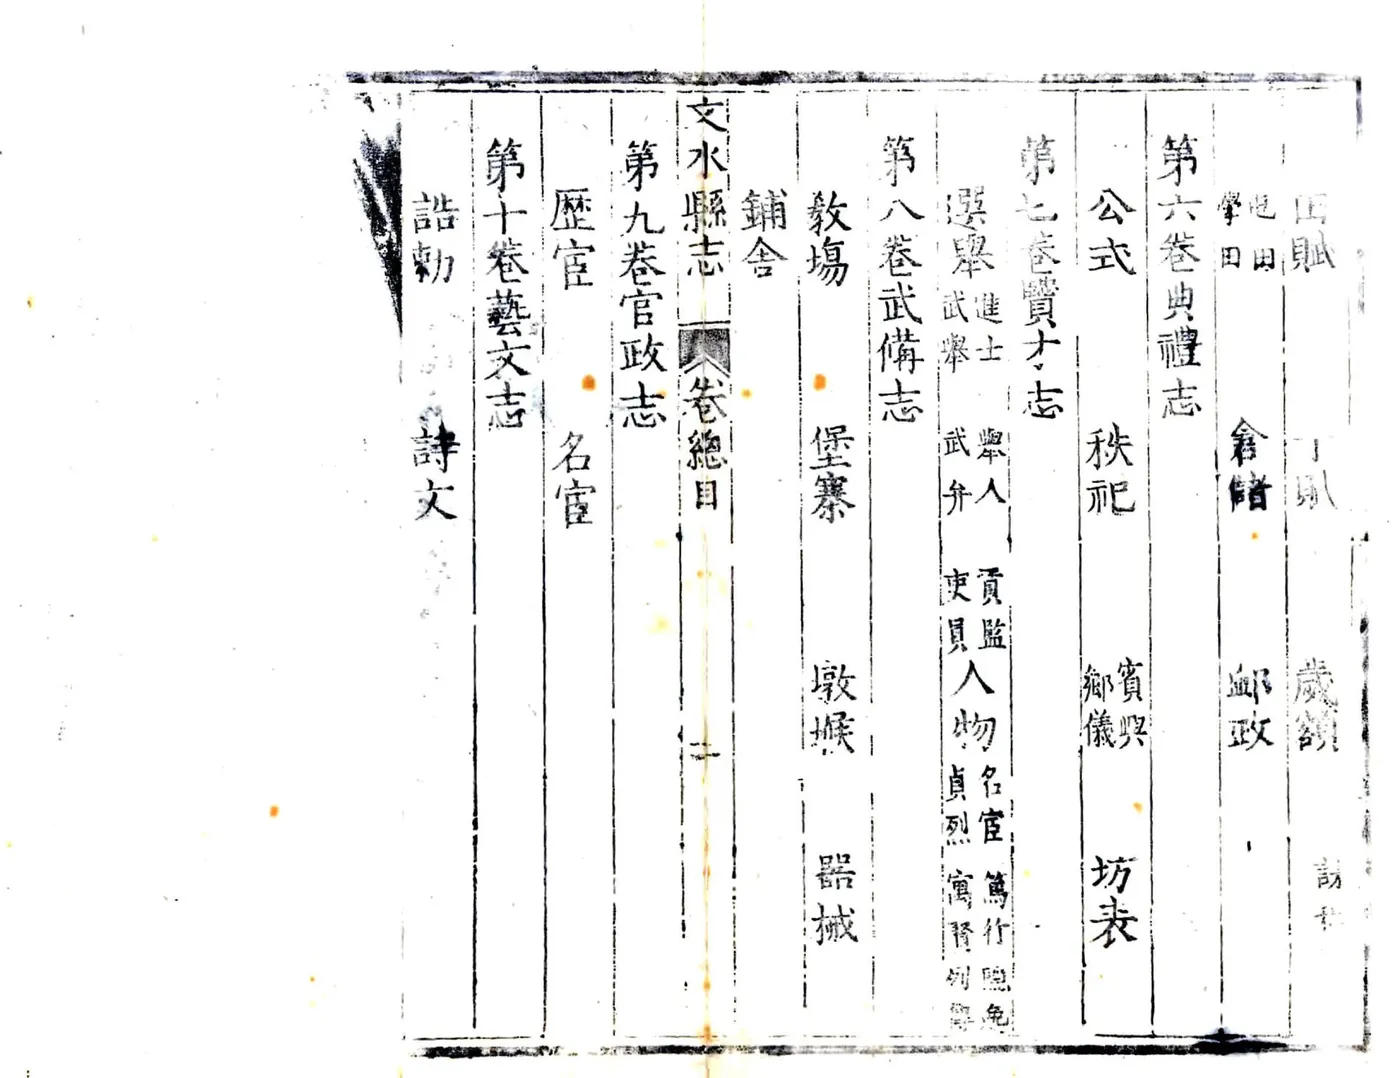 田賦 丁 歲額
屯田 學田 倉儲 郵政
第六卷典禮志
公式 秩祀 賓興 鄉儀 坊表
第七卷賢才志
選舉 進士 武舉 舉人 武弁 貢監 吏員 人物 名宦 貞烈 篤行 寓賢 列
第八卷武備志
教場 堡寨 墩堠 器械
鋪舍
文水縣志 卷總目 二
第九卷官政志
歷宦 名宦
第十卷藝文志
誥勅 詩文